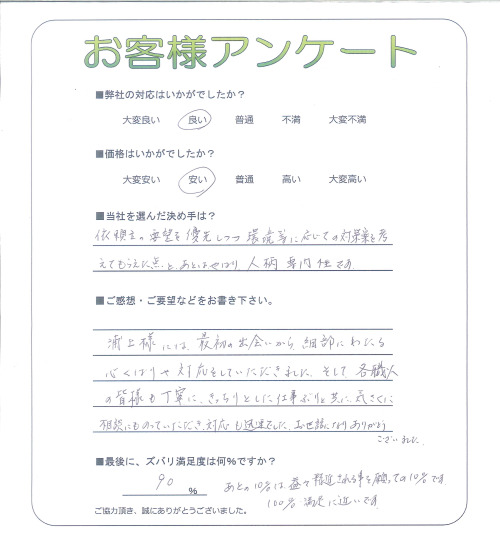 お客様アンケート
■弊社の対応はいかがでしたか？
大変良い 良い 普通 不満 大変不満
■価格はいかがでしたか？
大変安い 安い 普通 高い 大変高い
■当社を選んだ決め手は？
依頼主の要望を優先しつつ環境等に応じての対策案を考
えてもらえた点と、あとはやはり人柄、専門性です
■ご感想・ご要望などをお書き下さい。
浦上様には、最初の出会いから細部にわたる
心くばりや対応をしていただきました。そして、各職人
の皆様も丁寧に、きっちりとした仕事ぶりと共に、気さくに
相談にものっていただき、対応も迅速でした。お世話になりありがとう
ございました。
■最後に、ズバリ満足度は何%ですか？
90 %
あとの10%は益々 される事を願っての10%です
100%満足に近いです
ご協力頂き、誠にありがとうございました。